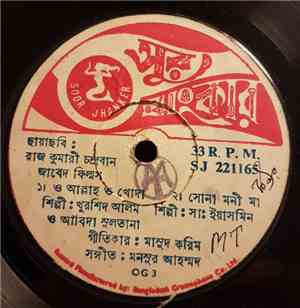 SOOR JHANKER
সুর ঝংকার
ছায়াছবি :
রাজ কুমারী চন্দ্রবান
জাবেদ ফিল্মস
33 R. P. M.
SJ 221165
১৷ ও আল্লাহ ও খোদা
২৷ সোনা মনী মা
শিল্পী : খুরশিদ আলিম
ও আবিদা সুলতানা
শিল্পী : সাঃ ইয়াসমিন
গীতিকার : মাসুদ করিম
সঙ্গীত : মনসুর আহমদ
MT
OG 3
Record Manufactured by: Bangladesh Gramophone Co. Ltd.